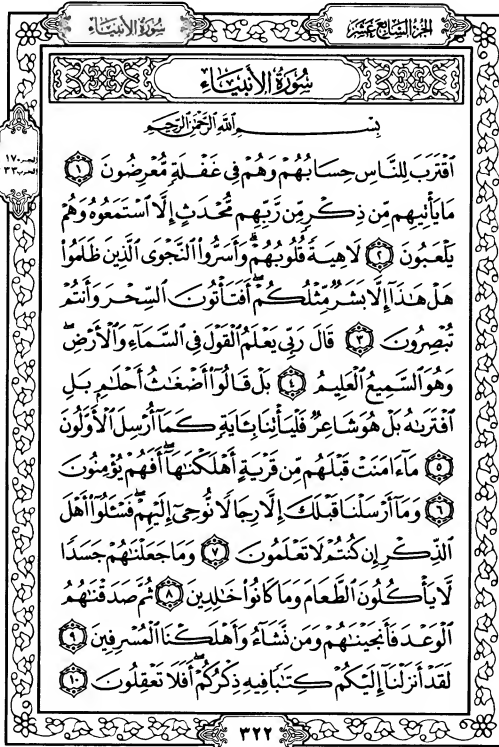 الجزء السابع عشر
سورة الأنبياء
سُورَةُ الأَنبِيَاءِ
الجزء ١٧
الحزب ٣٣
بِسْمِ اللَّهِ الرَّحْمَٰنِ الرَّحِيمِ
ٱقْتَرَبَ لِلنَّاسِ حِسَابُهُمْ وَهُمْ فِي غَفْلَةٍ مُّعْرِضُونَ ١
مَا يَأْتِيهِم مِّن ذِكْرٍ مِّن رَّبِّهِم مُّحْدَثٍ إِلَّا ٱسْتَمَعُوهُ وَهُمْ
يَلْعَبُونَ ٢ لَاهِيَةً قُلُوبُهُمْ ۗ وَأَسَرُّوا۟ ٱلنَّجْوَى ٱلَّذِينَ ظَلَمُوا۟
هَلْ هَٰذَآ إِلَّا بَشَرٌ مِّثْلُكُمْ ۖ أَفَتَأْتُونَ ٱلسِّحْرَ وَأَنتُمْ
تُبْصِرُونَ ٣ قَالَ رَبِّي يَعْلَمُ ٱلْقَوْلَ فِي ٱلسَّمَآءِ وَٱلْأَرْضِ ۖ
وَهُوَ ٱلسَّمِيعُ ٱلْعَلِيمُ ٤ بَلْ قَالُوٓا۟ أَضْغَٰثُ أَحْلَٰمٍۭ بَلِ
ٱفْتَرَىٰهُ بَلْ هُوَ شَاعِرٌ فَلْيَأْتِنَا بِـَٔايَةٍ كَمَآ أُرْسِلَ ٱلْأَوَّلُونَ
٥ مَآ ءَامَنَتْ قَبْلَهُم مِّن قَرْيَةٍ أَهْلَكْنَٰهَآ ۖ أَفَهُمْ يُؤْمِنُونَ
٦ وَمَآ أَرْسَلْنَا قَبْلَكَ إِلَّا رِجَالًا نُّوحِيٓ إِلَيْهِمْ ۖ فَسْـَٔلُوٓا۟ أَهْلَ
ٱلذِّكْرِ إِن كُنتُمْ لَا تَعْلَمُونَ ٧ وَمَا جَعَلْنَٰهُمْ جَسَدًا
لَّا يَأْكُلُونَ ٱلطَّعَامَ وَمَا كَانُوا۟ خَٰلِدِينَ ٨ ثُمَّ صَدَقْنَٰهُمُ
ٱلْوَعْدَ فَأَنجَيْنَٰهُمْ وَمَن نَّشَآءُ وَأَهْلَكْنَا ٱلْمُسْرِفِينَ ٩
لَقَدْ أَنزَلْنَآ إِلَيْكُمْ كِتَٰبًا فِيهِ ذِكْرُكُمْ ۖ أَفَلَا تَعْقِلُونَ ١٠
٣٢٢